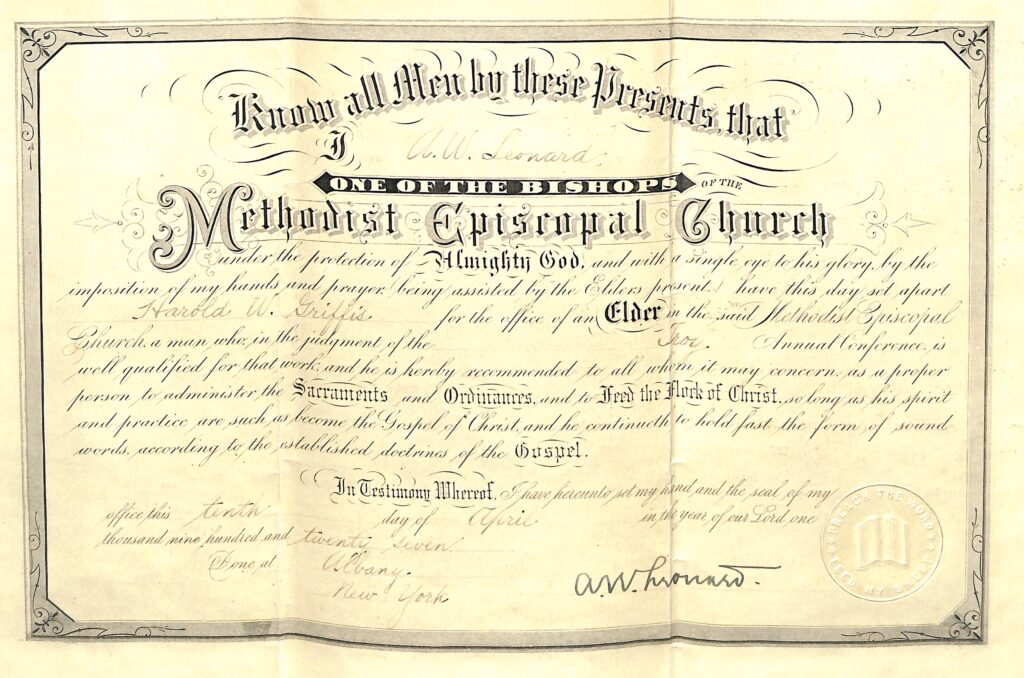 Know all Men by these Presents, that
I A. W. Leonard
ONE OF THE BISHOPS OF THE
Methodist Episcopal Church
under the protection of Almighty God, and with a single eye to his glory, by the
imposition of my hands and prayer, being assisted by the Elders present, have this day set apart
Harold W. Griffis for the office of an Elder in the said Methodist Episcopal
Church, a man who, in the judgment of the Troy Annual Conference, is
well qualified for that work; and he is hereby recommended to all whom it may concern, as a proper
person to administer the Sacraments and Ordinances, and to Feed the Flock of Christ, so long as his spirit
and practice are such as become the Gospel of Christ, and he continueth to hold fast the form of sound
words, according to the established doctrines of the Gospel.
In Testimony Whereof, I have hereunto set my hand and the seal of my
office this tenth day of April in the year of our Lord one
thousand nine hundred and twenty seven.
Done at Albany.
New York
A. W. Leonard.
PREACH THE WORD
MY